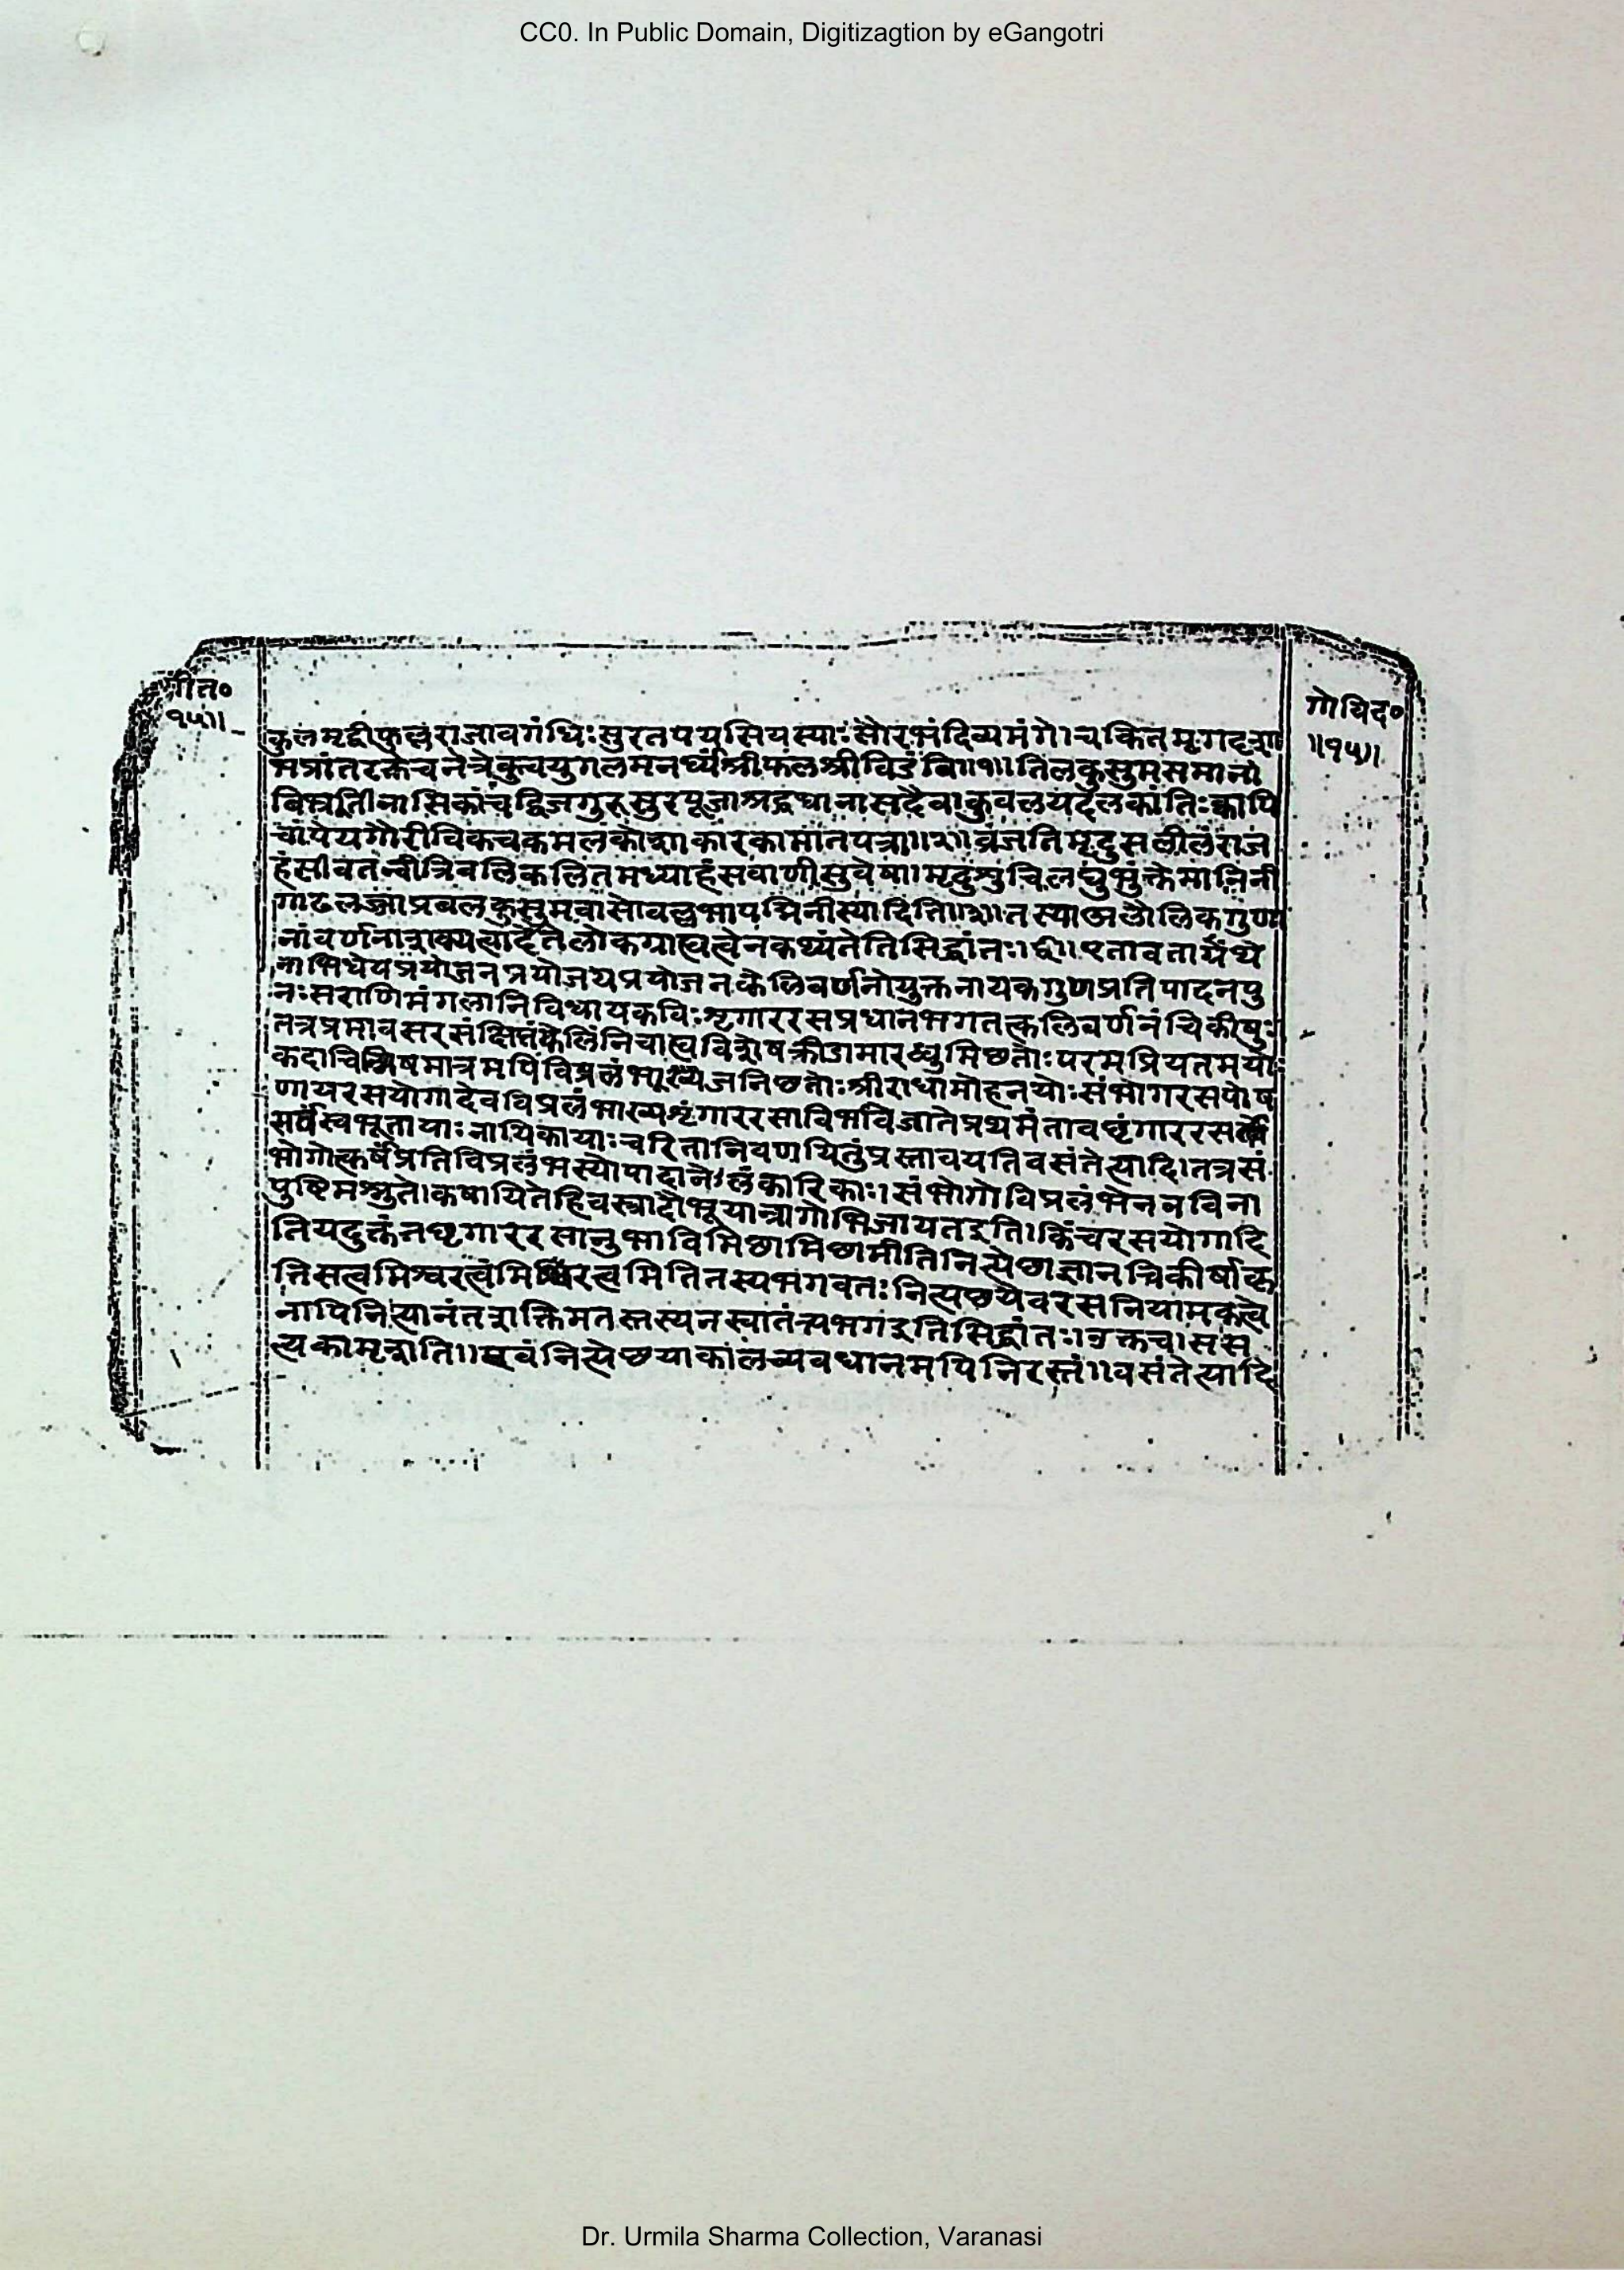 CC0. In Public Domain, Digitizagtion by eGangotri
गीत०
१५॥
गोविंद०
॥१५॥
कुलमृद्वीफुल्लराजीवगंधिःसुरतपयसियस्याःसौरभंदिव्यमंगे।चकितमृगदृशा
मप्रांतरक्तेचनेत्रेकुचयुगलमनर्घ्यंश्रीफलश्रीविडंबि॥१॥तिलकुसुमसमानां
बिभ्रतीनासिकांचद्विजगुरुसुरपूजाश्रद्दधानासदैव।कुवलयदलकांतिःकापि
चांपेयगौरीविकचकमलकोशाकारकामातपत्रा॥२॥व्रजतिमृदुसलीलंराज
हंसीवतन्वीत्रिवलिकलितमध्याहंसवाणीसुवेषा।मृदुशुचिलघुभुंक्तेमानिनी
गाढलज्जाप्रबलकुसुमवासोवल्लभापद्मिनीस्यादिति॥३॥तस्याअलौलिकगुणा
नांवर्णनाशक्यत्वादेतेलोकग्राह्यत्वेनकथ्यंतेतिसिद्धांतः।छ॥एतावताग्रंथे
नाभिधेयप्रयोजनप्रयोजयप्रयोजनकेलिवर्णनोयुक्तनायकगुणप्रतिपादनपु
नःसराणिमंगलानिविधायकविःशृगाररसप्रधानेभगतत्कलिवर्णनंचिकीषुः
तत्रप्रभावसरसंक्षिप्तंकेलिंनिचाह्यविशेषक्रीडामारब्धुमिछतोः।परमप्रियतमयोः
कदाचिन्निमिषमात्रमपिविप्रलंभाख्येजनिछतोःश्रीराधामोहनयोःसंभोगरसपोष
णायरसयोगादेवविप्रलंभाख्यशृंगाररसाविर्भावेजातेप्रथमंतावछृंगाररस
सर्वस्वभूतायाःनायिकायाःचरितानिवर्णयितुंप्रस्तावयतिवसंतेत्यादि।तत्रसं
भोगोत्कर्षंप्रतिविप्रलंभस्योपादानेऽलंकारिकाः।संभोगोविप्रलंभेनबविना
पुष्टिमश्नुते।कषायितेहिवस्त्रादौभूयान्रागोभिजायतइति।किंचरसयोगादि
तियदुक्तंनशृगाररसानुभाविमिछामिछामीतिनित्येछाज्ञानचिकीर्षाकृ
त्तिसत्वमिश्वरत्वंमिश्वरत्वमितितस्यभगवतःनित्यछयैवरसनियामकत्वे
नापिनित्यानंतशक्तिमतस्तस्यनस्वातंत्र्यभगइतिसिद्धांतः।उक्तंच।ससं
त्यकामृशाति॥एवंनित्येछयाकालव्यवधानमपिनिरस्तं॥वसंतेत्यादि
Dr. Urmila Sharma Collection, Varanasi